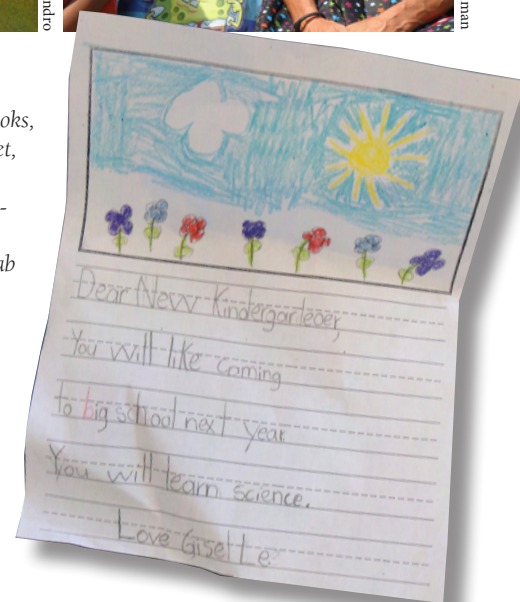 ndro
man
oks,
et,
-
ab
Dear New Kindergartener,
You will like coming
to big school next year
You will learn science.
Love Giselle